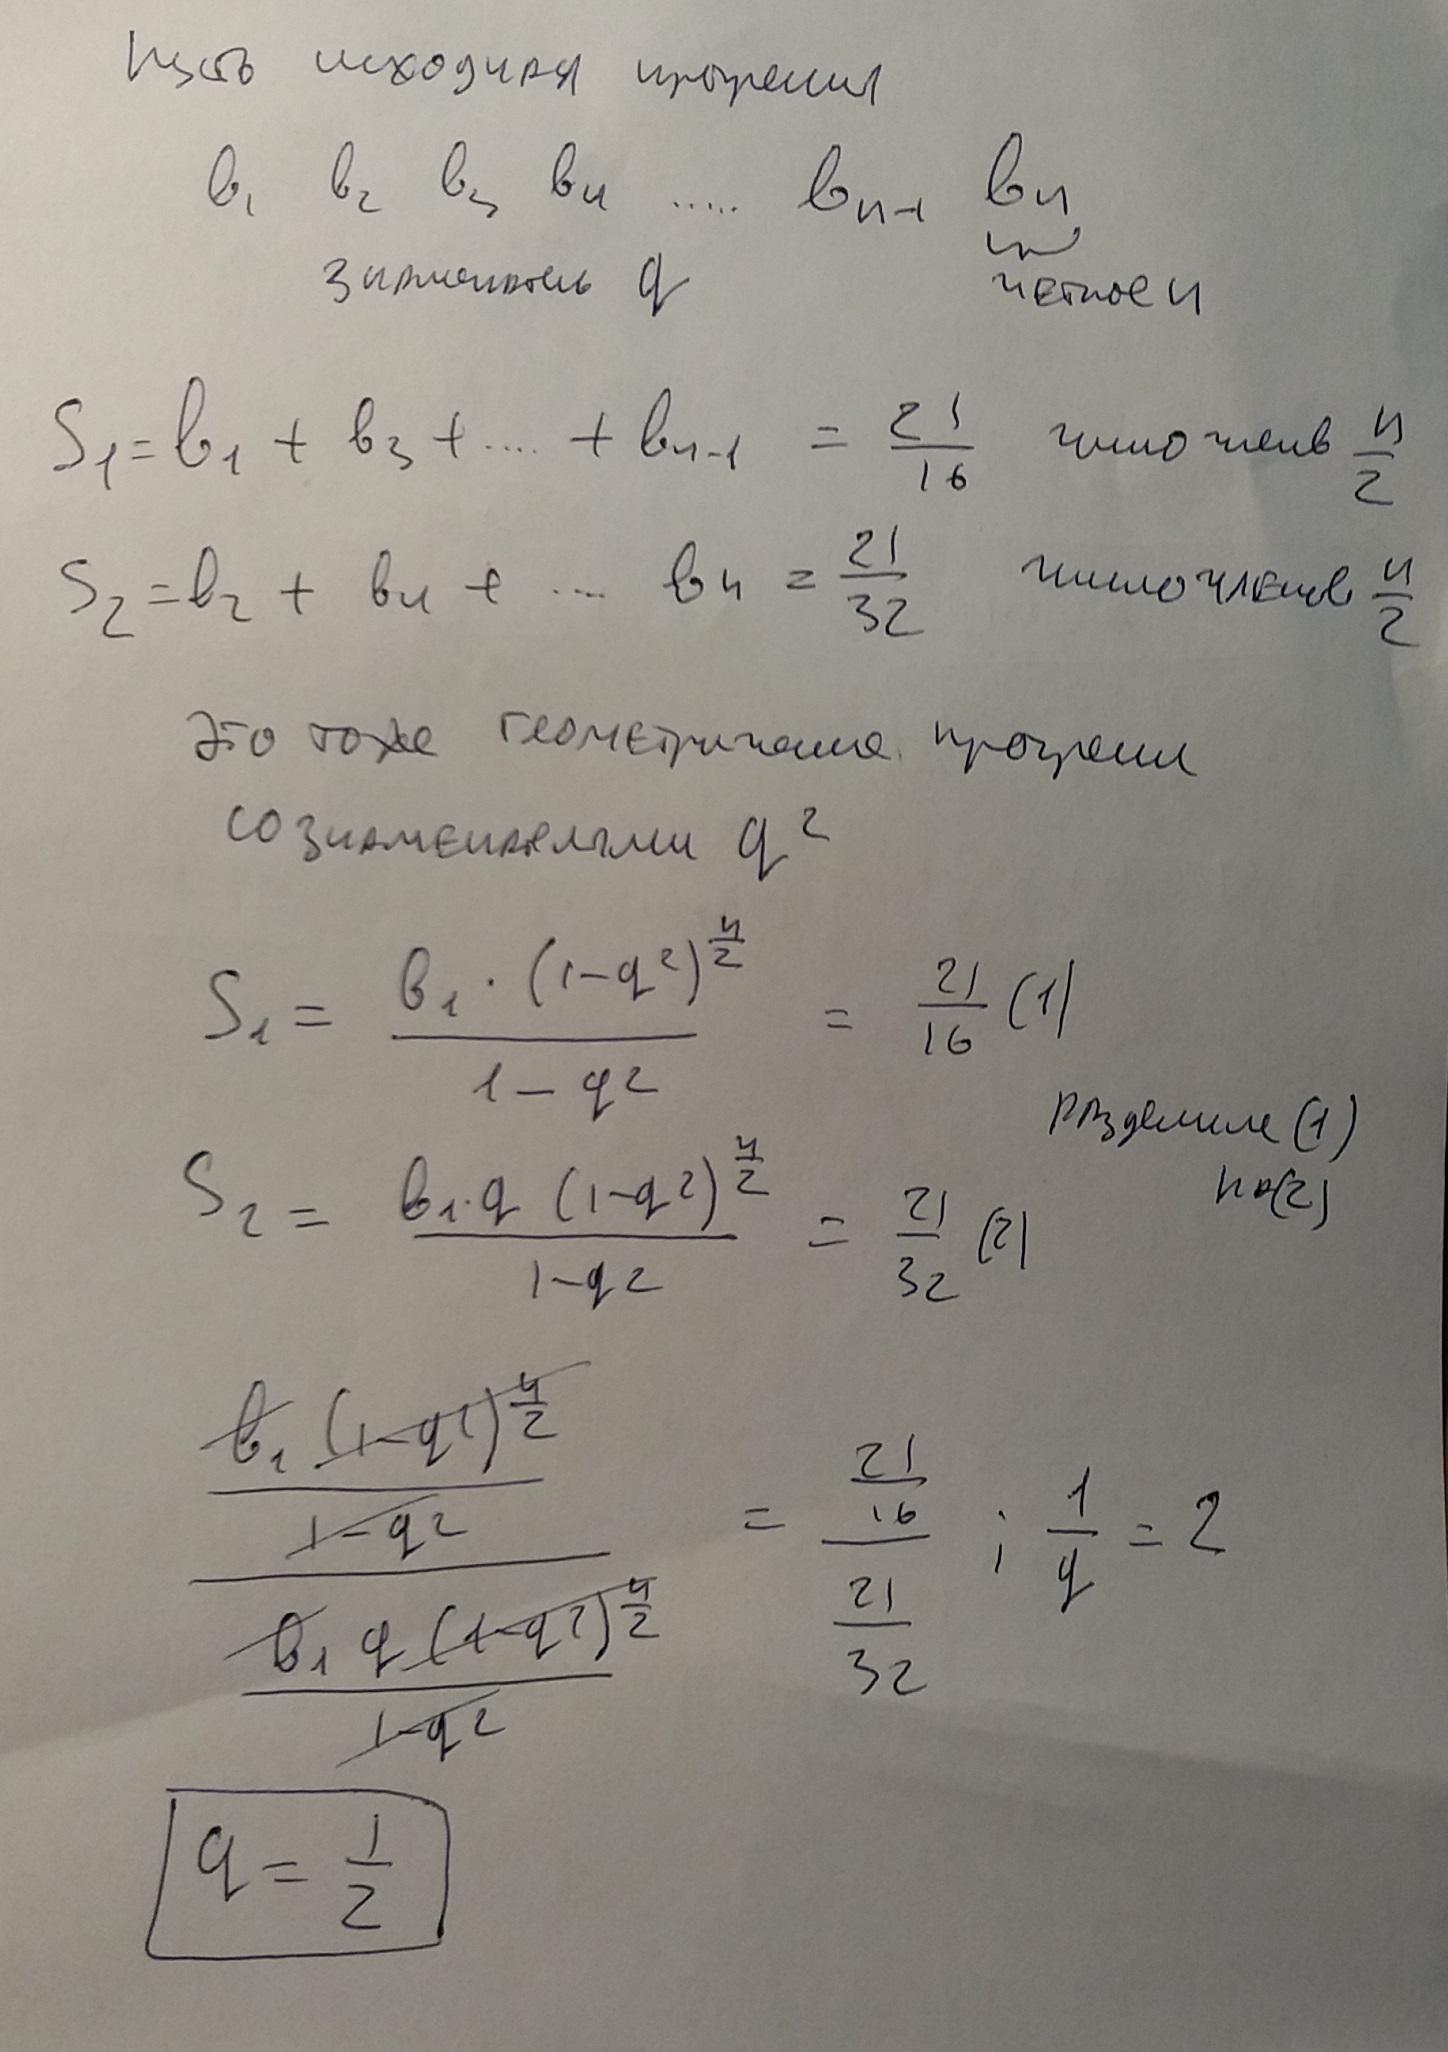 Пусть исходная прогрессия
b₁ b₂ b₃ b₄ ..... bₙ₋₁ bₙ
знаменатель q четное n
S₁ = b₁ + b₃ + .... + bₙ₋₁ = 21/16 число членов n/2
S₂ = b₂ + b₄ + .... bₙ = 21/32 число членов n/2
Это тоже геометрические прогрессии
со знаменателями q²
S₁ = b₁·(1-q²)^(n/2) / (1-q²) = 21/16 (1)
разделим (1)
на (2)
S₂ = b₁·q (1-q²)^(n/2) / (1-q²) = 21/32 (2)
(b₁ (1-q²)^(n/2) / (1-q²)) / (b₁ q (1-q²)^(n/2) / (1-q²)) = (21/16) / (21/32) ; 1/q = 2
q = 1/2